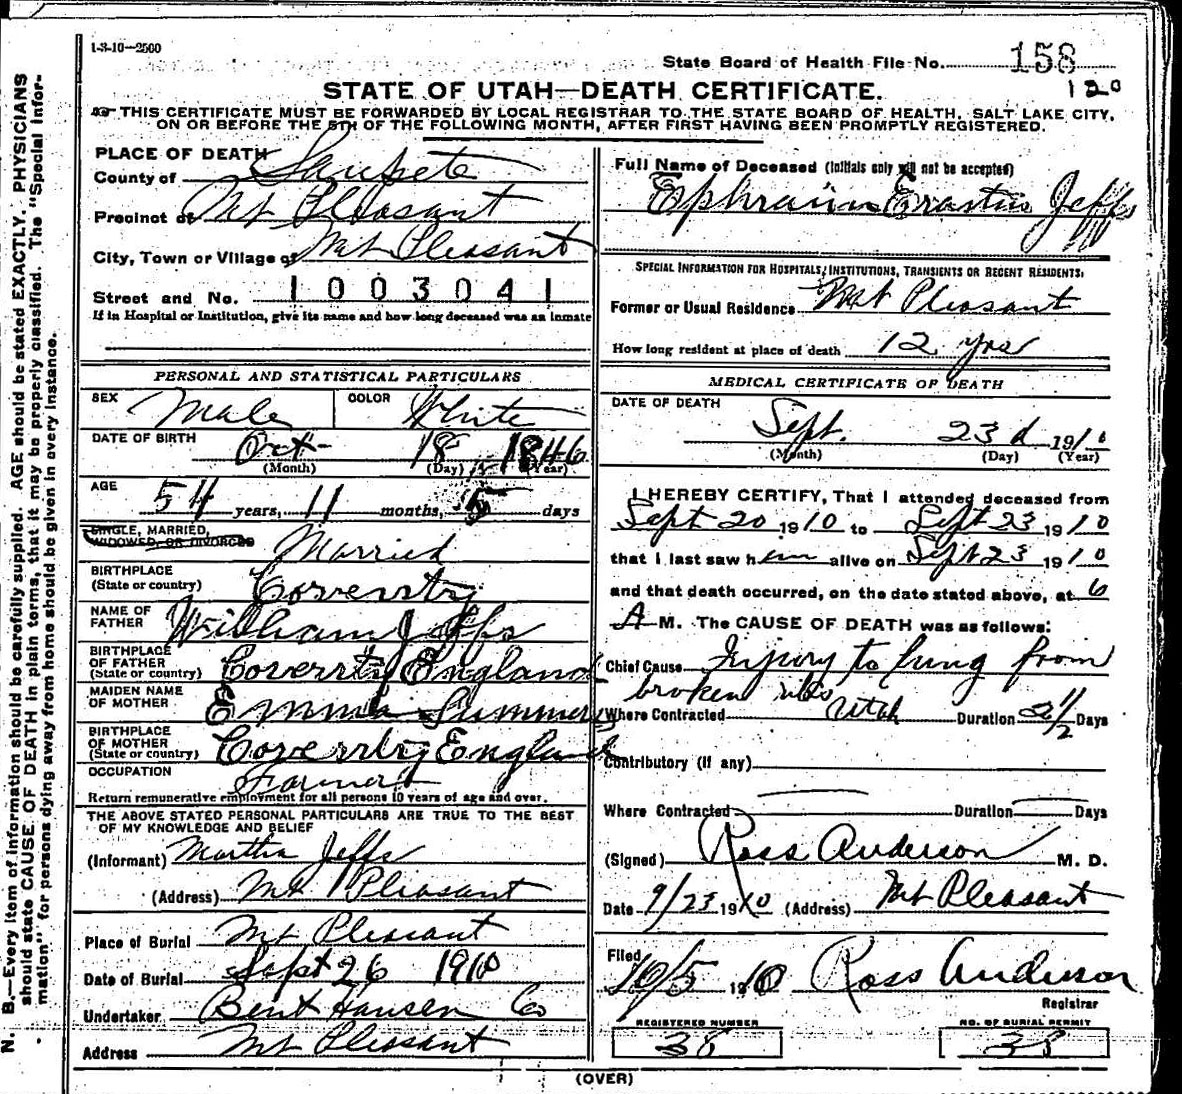 1-3-10—2500
State Board of Health File No. 158
120
STATE OF UTAH—DEATH CERTIFICATE.
THIS CERTIFICATE MUST BE FORWARDED BY LOCAL REGISTRAR TO THE STATE BOARD OF HEALTH, SALT LAKE CITY,
ON OR BEFORE THE 5TH OF THE FOLLOWING MONTH, AFTER FIRST HAVING BEEN PROMPTLY REGISTERED.
PLACE OF DEATH
County of Sanpete
Precinct of Mt Pleasant
City, Town or Village of Mt Pleasant
Street and No. 1003041
If in Hospital or Institution, give its name and how long deceased was an inmate
PERSONAL AND STATISTICAL PARTICULARS
SEX Male COLOR White
DATE OF BIRTH Oct 18 1846
(Month) (Day) (Year)
AGE
54 years, 11 months, 5 days
SINGLE, MARRIED,
WIDOWED, OR DIVORCED Married
BIRTHPLACE
(State or country) Coventry
NAME OF
FATHER William Jeffs
BIRTHPLACE
OF FATHER
(State or country) Coventry England
MAIDEN NAME
OF MOTHER Emma Summers
BIRTHPLACE
OF MOTHER
(State or country) Coventry England
OCCUPATION Farmer
Return remunerative employment for all persons 10 years of age and over.
THE ABOVE STATED PERSONAL PARTICULARS ARE TRUE TO THE BEST
OF MY KNOWLEDGE AND BELIEF
(Informant) Martha Jeffs
(Address) Mt Pleasant
Place of Burial Mt Pleasant
Date of Burial Sept 26 1910
Undertaker Bent Hansen Co
Address Mt Pleasant
Full Name of Deceased (Initials only will not be accepted)
Ephraim Erastus Jeffs
SPECIAL INFORMATION FOR HOSPITALS, INSTITUTIONS, TRANSIENTS OR RECENT RESIDENTS.
Former or Usual Residence Mt Pleasant
How long resident at place of death 12 yrs
MEDICAL CERTIFICATE OF DEATH
DATE OF DEATH
Sept. 23d 1910
(Month) (Day) (Year)
I HEREBY CERTIFY, That I attended deceased from
Sept 20 1910 to Sept 23 1910
that I last saw him alive on Sept 23 1910
and that death occurred, on the date stated above, at 6
A M. The CAUSE OF DEATH was as follows:
Chief Cause Injury to lung from
broken ribs
Where Contracted Utah Duration 1/2 Days
Contributory (if any)
Where Contracted Duration Days
(Signed) Ross Anderson M. D.
Date 9/23 1910 (Address) Mt Pleasant
Filed
10/5 1910 Ross Anderson
Registrar
REGISTERED NUMBER
38
NO. OF BURIAL PERMIT
38
(OVER)
N. B.—Every item of information should be carefully supplied. AGE should be stated EXACTLY. PHYSICIANS
should state CAUSE OF DEATH in plain terms, that it may be properly classified. The "Special Infor-
mation" for persons dying away from home should be given in every instance.